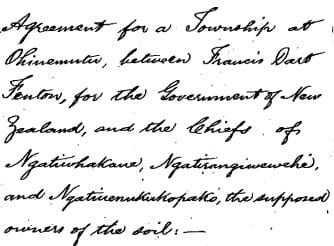 Agreement for a Township at
Ohinemutu, between Francis Dart
Fenton, for the Government of New
Zealand, and the Chiefs of
Ngatiwhakaue, Ngatirangiwewehi,
and Ngatiuenukukopako, the supposed
owners of the soil:—